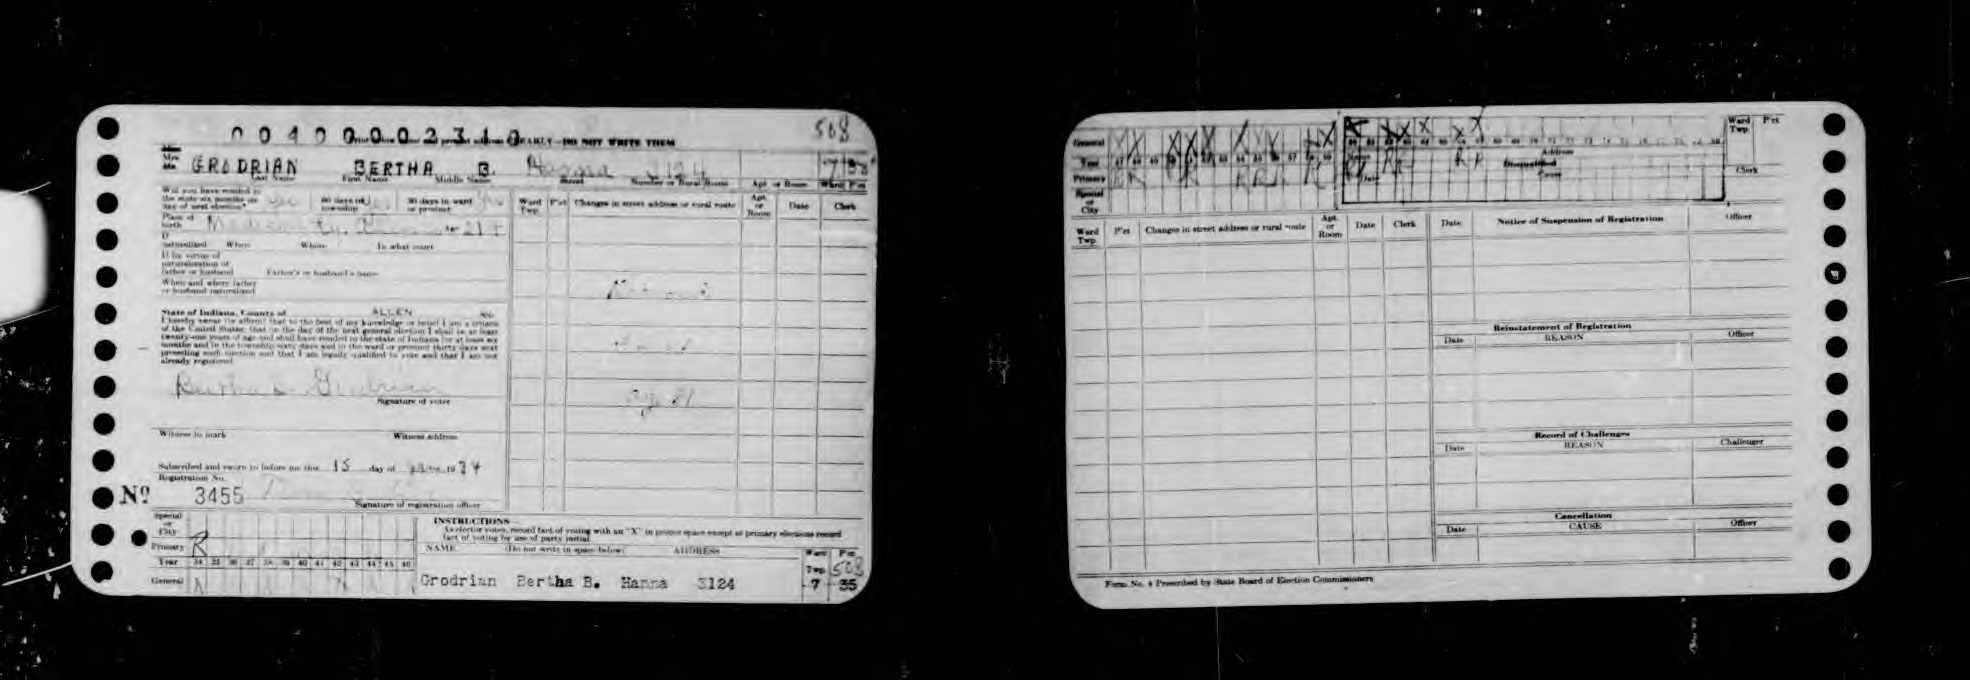 0 0 4 0 0 0 0 2 3 1 0
508
CLEARLY—DO NOT WRITE THEM
Mrs.
GRODRIAN BERTHA B. Hanna 3124
Last Name First Name Middle Name Street Number or Rural Route Apt. or Room Ward P'ct
Will you have resided in
the state six months on
day of next election? yes 60 days of
township 30 days in ward
or precinct yes
Ward
Twp. P'ct Changes in street address or rural route Apt.
or
Room Date Clerk
Place of
birth
If
naturalized When Where In what court
If by virtue of
naturalization of
father or husband Father's or husband's name
When and where father
or husband naturalized
State of Indiana, County of ALLEN ss.
I hereby swear (or affirm) that to the best of my knowledge or belief I am a citizen
of the United States; that on the day of the next general election I shall be at least
twenty-one years of age and shall have resided in the state of Indiana for at least six
months and in the township sixty days and in the ward or precinct thirty days next
preceding such election and that I am legally qualified to vote and that I am not
already registered.
Bertha B. Grodrian
Signature of voter
Witness to mark Witness address
Subscribed and sworn to before me this 15 day of 1934
Registration No.
Nº 3455
Signature of registration officer
Special
or
City
Primary R
Year 34 35 36 37 38 39 40 41 42 43 44 45 46
General X X
INSTRUCTIONS—
As elector votes, record fact of voting with an "X" in proper space except at primary elections record
fact of voting by use of party initial.
NAME (Do not write in space below) ADDRESS Ward
Twp. P'ct
508
Grodrian Bertha B. Hanna 3124 7 35
General X X X X X X X X X X X X X
Year 47 48 49 50 51 52 53 54 55 56 57 58 59 60 61 62 63 64 65 66 67 68 69 70
Primary R R R R R R R R R
Special
or
City
Disqualified
Date Cause
Address
Ward
Twp. P'ct
Clerk
Ward
Twp. P'ct Changes in street address or rural route Apt.
or
Room Date Clerk
Date Notice of Suspension of Registration Officer
Reinstatement of Registration
Date REASON Officer
Record of Challenges
Date REASON Challenger
Cancellation
Date CAUSE Officer
Form No. 4 Prescribed by State Board of Election Commissioners